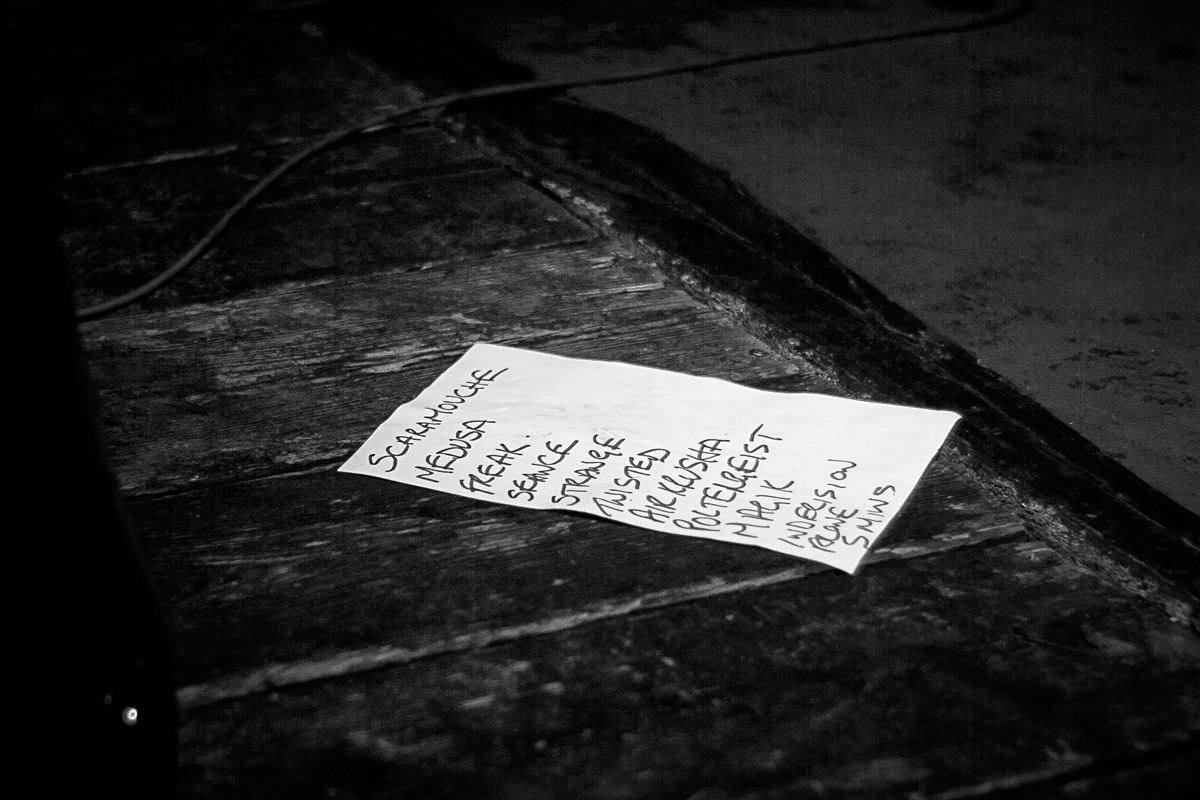 SCARAMOUCHE
MEDUSA
FREAK.
SEANCE
STRANGE
TWISTED
AIRKRUSHA
POLTERGEIST
MAGIK
INDECISION
PLANE
SMINS